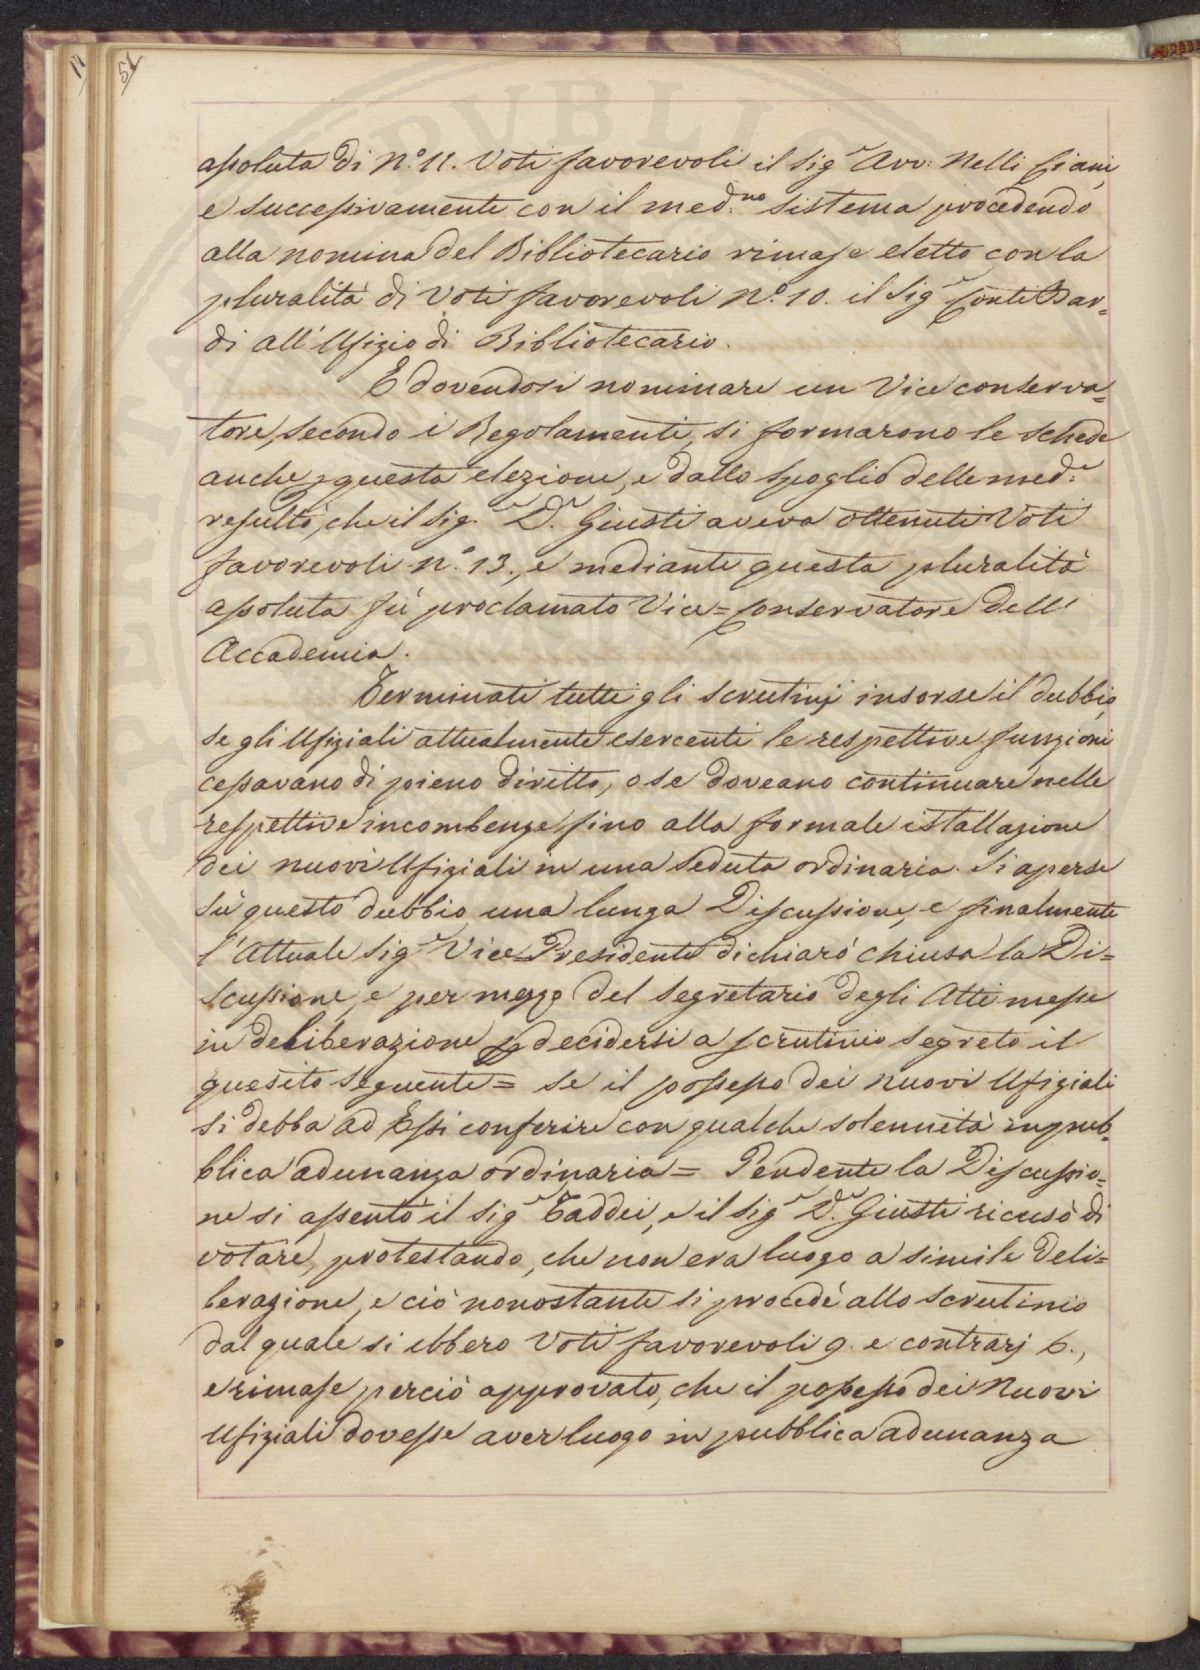 54
assoluta di N.° 11. Voti favorevoli il Sig.r Avv: Nelli Ciani,
e successivamente con il med.no sistema procedendo
alla nomina del Bibliotecario rimase eletto con la
pluralità di Voti favorevoli N.° 10. il Sig.r Conte Bar=
di all'Ufizio di Bibliotecario.
E dovendosi nominare un Vice conserva=
tore, secondo i Regolamenti, si formarono le schede
anche p questa elezione, e dallo spoglio delle med.e
resultò, che il Sig.r D.r Giusti aveva ottenuti Voti
favorevoli n.° 13., e mediante questa pluralità
assoluta fù proclamato Vice=Conservatore dell'
Accademia.
Terminati tutti gli scrutinj insorse il dubbio,
se gli Ufiziali attualmente esercenti le respettive funzioni
cessavano di pieno diritto, o se doveano continuare nelle
respettive incombenze fino alla formale istallazione
dei nuovi Ufiziali in una seduta ordinaria. Si aperse
sù questo dubbio una lunga Discussione, e finalmente
l'Attuale Sig.r Vice=Presidente dichiarò chiusa la Di=
scussione, e per mezzo del Segretario degli Atti messe
in deliberazione p decidersi a scrutinio segreto il
quesito seguente= se il possesso dei nuovi Ufiziali
si debba ad Essi conferire con qualche solennità in pub=
blica adunanza ordinaria= Pendente la Discussio=
ne si assentò il Sig.r Taddei, e il Sig.r D.r Giusti ricusò di
votare, protestando, che non era luogo a simile deli=
berazione, e ciò nonostante si procedè allo scrutinio
dal quale si ebbero Voti favorevoli 9. e contrarj 6.,
e rimase perciò approvato, che il possesso dei Nuovi
Ufiziali dovesse aver luogo in pubblica adunanza